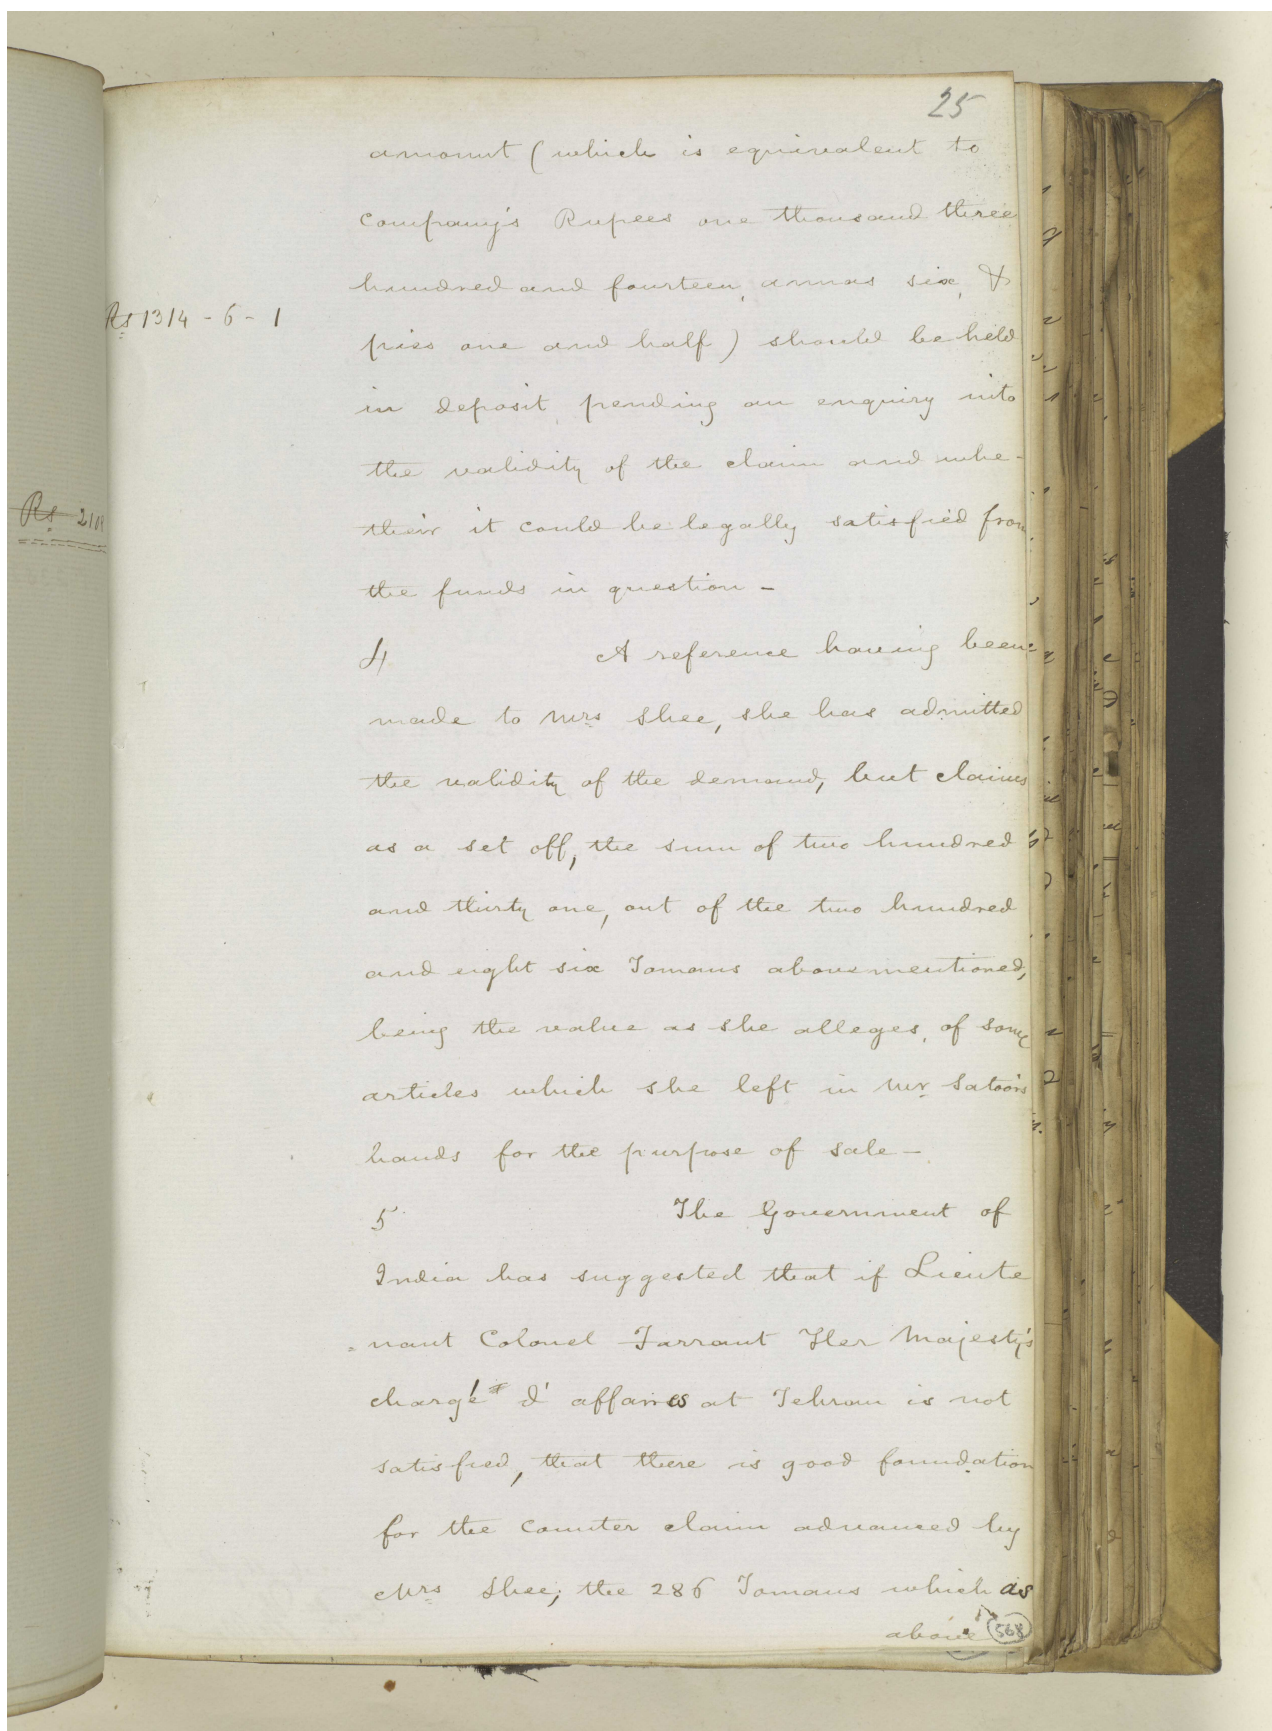 25
amount (which is equivalent to
Company's Rupees one thousand three
hundred and fourteen, annas six, &
Rs 1314 - 6 - 1
pies one and half) should be held
in deposit pending an enquiry into
the validity of the claim and whe-
Rs 2108
their it could be legally satisfied from
the funds in question -
4 A reference having been
made to Mrs Shee, she has admitted
the validity of the demand, but claims
as a set off, the sum of two hundred
and thirty one, out of the two hundred
and eight six Tomans abovementioned,
being the value as she alleges, of some
articles which she left in Mr Satoor's
hands for the purpose of sale -
5 The Government of
India has suggested that if Lieute
=nant Colonel Farrant Her Majesty's
chargé d'affaires at Tehran is not
satisfied, that there is good foundation
for the counter claim advanced by
Mrs Shee; the 286 Tomans which as
above
568